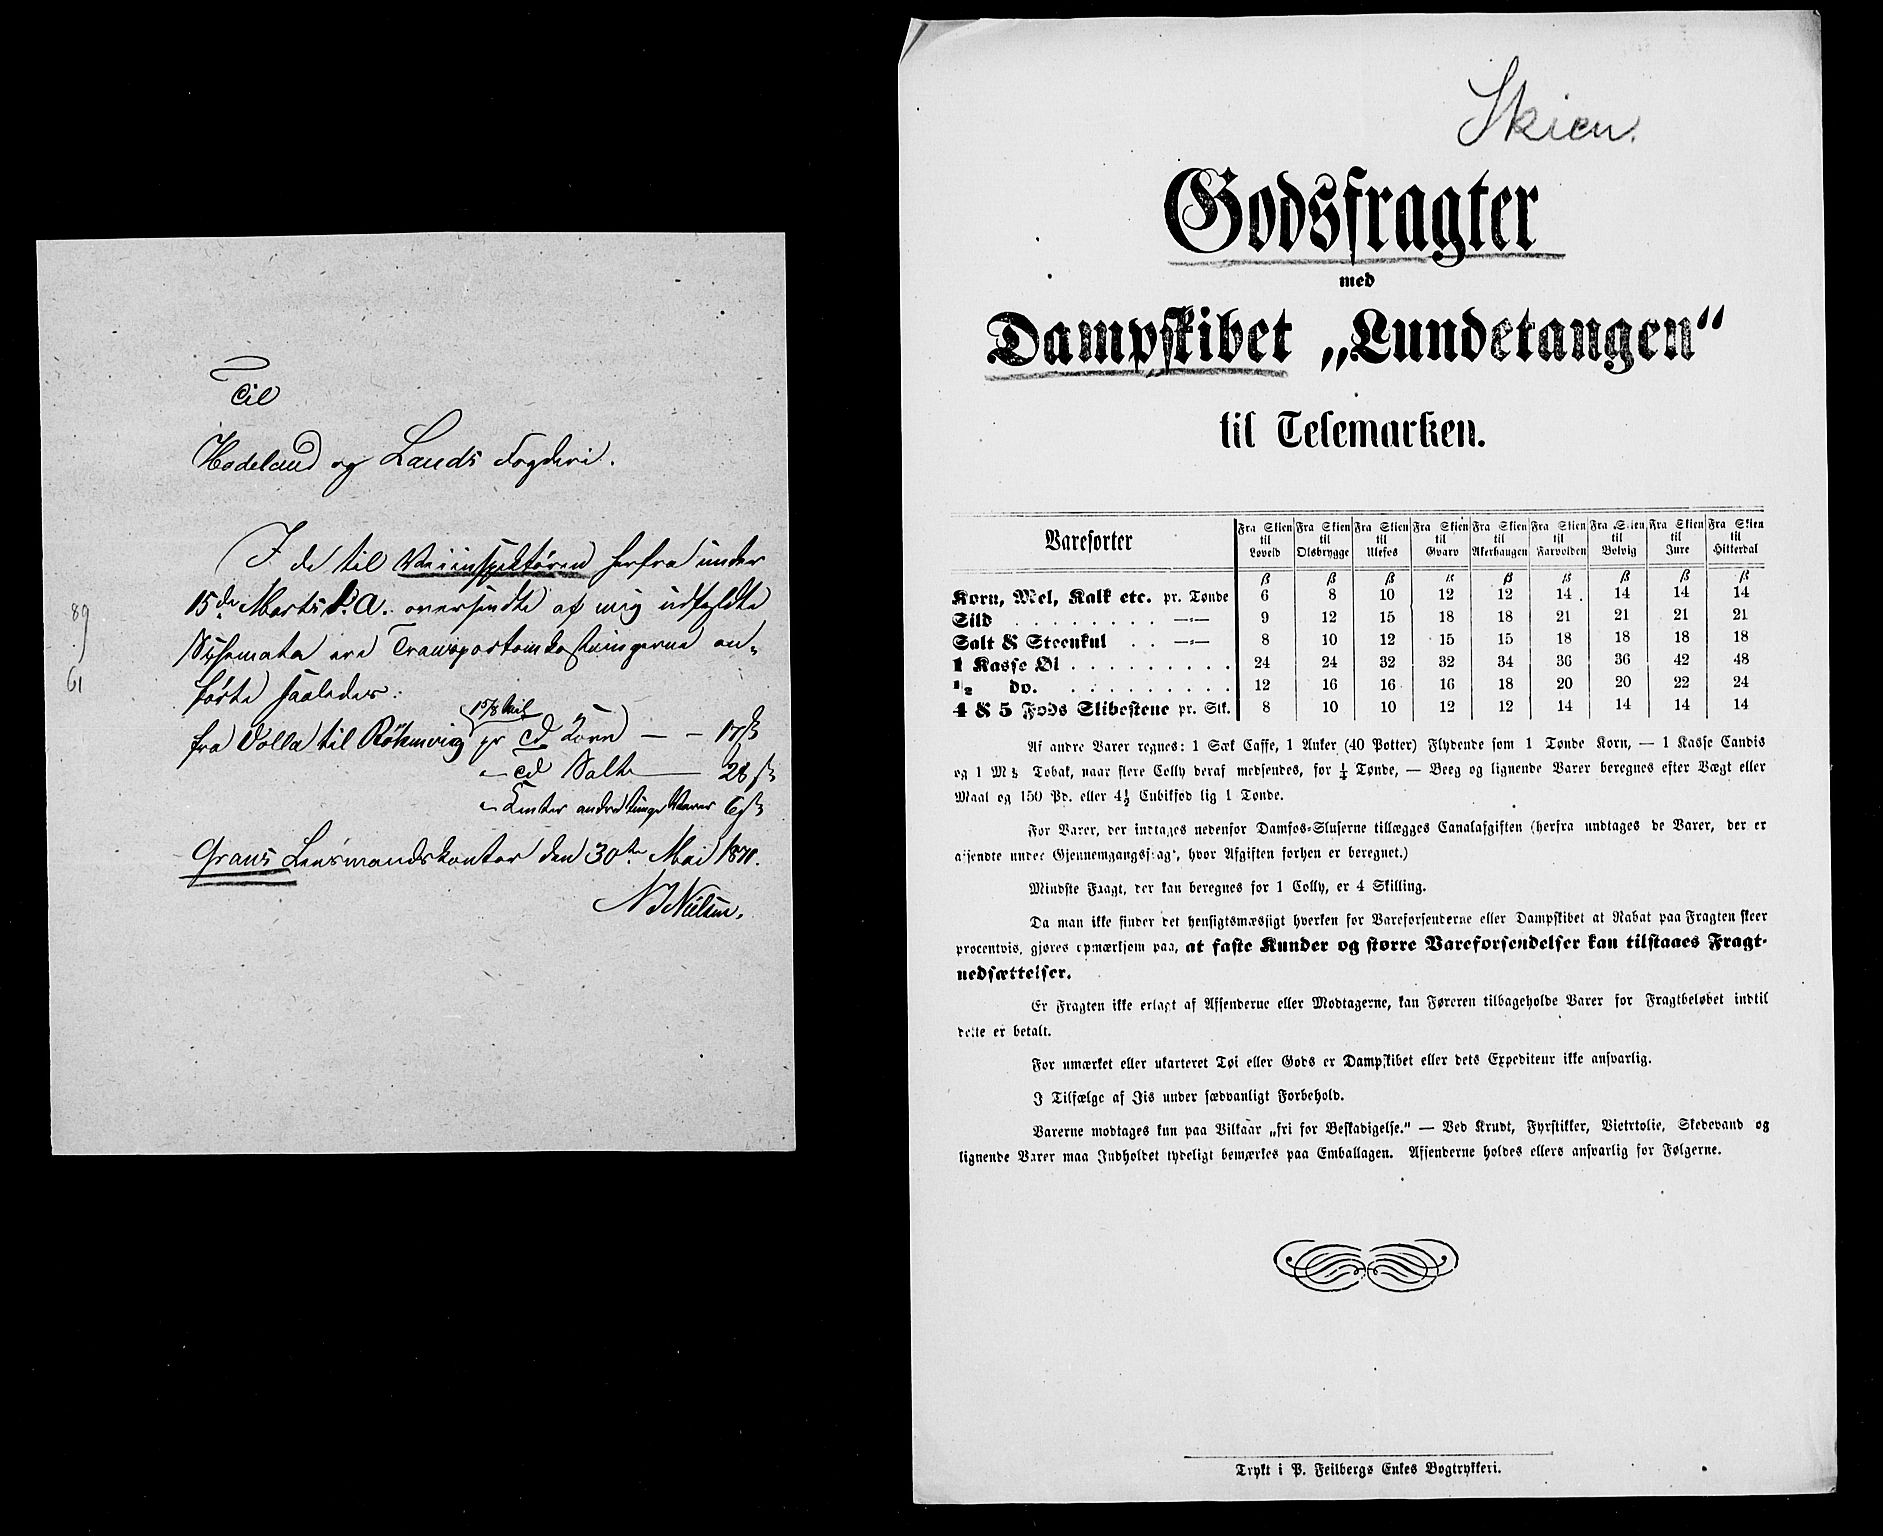 Til
Hadeland og Lands Fogderi.
I de til Veiinspektøren herfra under
15de Marts d. A. oversendte af mig udfyldte
Schemata ere Transportomkostningerne an-
førte saaledes:
15/8 Mil
fra Volla til Røkenvig pr Td Korn — - 17 ß
" Td Salt — 28 ß
" Centner andre tunge Varer 6 ß
Grans Lensmandskontor den 30te Mai 1870.
N Nielsen.
89
61
Skien.
Godsfragter
med
Dampskibet „Lundetangen“
til Telemarken.
Varesorter | Fra Skien til Løveid | Fra Skien til Olsbrygge | Fra Skien til Ulefos | Fra Skien til Gvarv | Fra Skien til Akerhaugen | Fra Skien til Farvolden | Fra Skien til Bolvig | Fra Skien til Jure | Fra Skien til Hitterdal
ß ß ß ß ß ß ß ß ß
Korn, Mel, Kalk etc. pr. Tønde 6 8 10 12 12 14 14 14 14
Sild . . . . . . . . —„— 9 12 15 18 18 21 21 21 21
Salt & Steenkul . . —„— 8 10 12 15 15 18 18 18 18
1 Kasse Øl . . . . . . . . . 24 24 32 32 34 36 36 42 48
1/2 do. . . . . . . . . . 12 16 16 16 18 20 20 22 24
4 & 5 Fods Slibestene pr. Stk. 8 10 10 12 12 14 14 14 14
Af andre Varer regnes: 1 Sæk Caffe, 1 Anker (40 Potter) Flydende som 1 Tønde Korn, — 1 Kasse Candis
og 1 M℔ Tobak, naar flere Colly deraf medsendes, for ¼ Tønde, — Beeg og lignende Varer beregnes efter Vægt eller
Maal og 150 Pd. eller 4½ Cubikfod lig 1 Tønde.
For Varer, der indtages nedenfor Damfos-Sluserne tillægges Canalafgiften (herfra undtages de Varer, der er
afsendte under Gjennemgangsfragt, hvor Afgiften forhen er beregnet.)
Mindste Fragt, der kan beregnes for 1 Colly, er 4 Skilling.
Da man ikke finder det hensigtsmæssigt hverken for Vareforsenderne eller Dampskibet at Rabat paa Fragten skeer
procentvis, gjøres opmærksom paa, at faste Kunder og større Vareforsendelser kan tilstaaes Fragt-
nedsættelser.
Er Fragten ikke erlagt af Afsenderne eller Modtagerne, kan Føreren tilbageholde Varer for Fragtbeløbet indtil
dette er betalt.
For umærket eller ukarteret Tøi eller Gods er Dampskibet eller dets Expediteur ikke ansvarlig.
I Tilfælge af Iis under sædvanligt Forbehold.
Varerne modtages kun paa Vilkaar „fri for Beskadigelse.“ — Ved Krudt, Fyrstikker, Vietrtolie, Skedevand og
lignende Varer maa Indholdet tydeligt bemærkes paa Emballagen. Afsenderne holdes ellers ansvarlig for Følgerne.
Trykt i P. Feilbergs Enkes Bogtrykkeri.